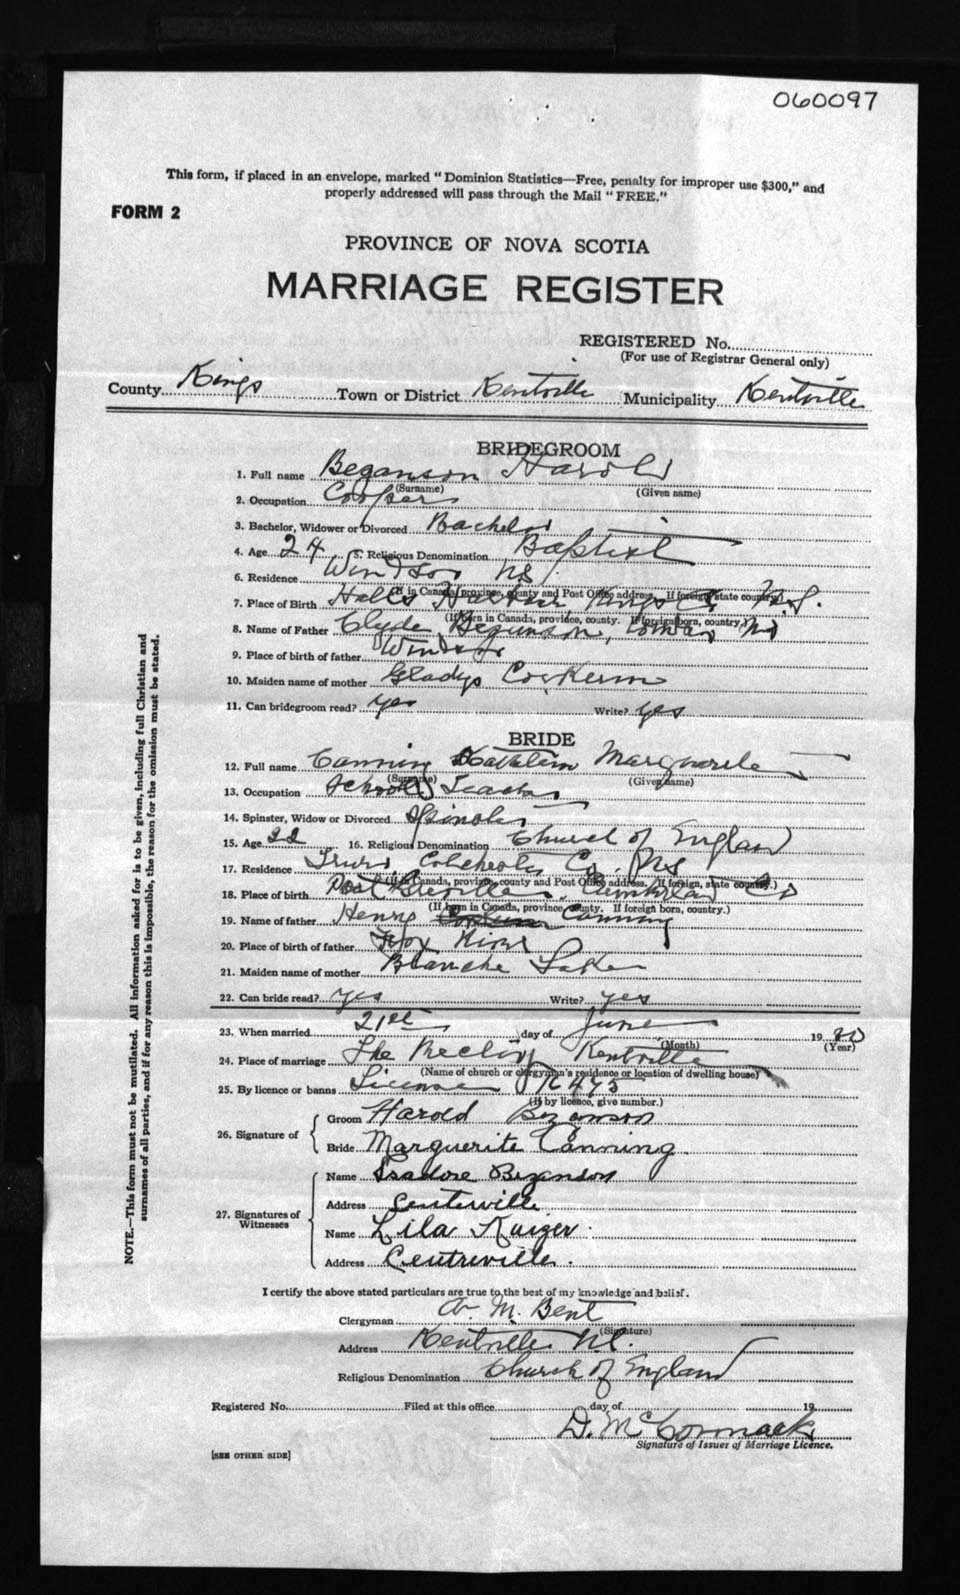 060097
This form, if placed in an envelope, marked "Dominion Statistics—Free, penalty for improper use $300," and
properly addressed will pass through the Mail "FREE."
FORM 2
PROVINCE OF NOVA SCOTIA
MARRIAGE REGISTER
REGISTERED No.
(For use of Registrar General only)
County Kings Town or District Kentville Municipality Kentville
BRIDEGROOM
1. Full name Bezanson Harold
(Surname) (Given name)
2. Occupation Cooper
3. Bachelor, Widower or Divorced Bachelor
4. Age 24 5. Religious Denomination Baptist
6. Residence Windsor NS
(If in Canada, province, county and Post Office address. If foreign, state country.)
7. Place of Birth Halls Harbour Kings Co N.S.
(If born in Canada, province, county. If foreign born, country.)
8. Name of Father Clyde Bezanson
9. Place of birth of father Windsor
10. Maiden name of mother Gladys
11. Can bridegroom read? yes Write? yes
BRIDE
12. Full name Canning Kathleen Marguerite
(Surname) (Given name)
13. Occupation School Teacher
14. Spinster, Widow or Divorced Spinster
15. Age 22 16. Religious Denomination Church of England
17. Residence Truro Colchester Co. NS
(If in Canada, province, county and Post Office address. If foreign, state country.)
18. Place of birth Port Greville Cumberland Co
(If born in Canada, province, county. If foreign born, country.)
19. Name of father Henry Canning
20. Place of birth of father Fox River
21. Maiden name of mother Blanche
22. Can bride read? yes Write? yes
23. When married 21st day of June 19
(Month) (Year)
24. Place of marriage The Rectory Kentville
(Name of church or clergyman's residence or location of dwelling house)
25. By licence or banns License
(If by licence, give number.)
26. Signature of
Groom Harold Bezanson
Bride Marguerite Canning
27. Signatures of Witnesses
Name Isadore Bezanson
Address Centreville
Name Lila Kaizer
Address Centreville.
I certify the above stated particulars are true to the best of my knowledge and belief.
Clergyman A. M. Bent
(Signature)
Address Kentville N.S.
Religious Denomination Church of England
Registered No. Filed at this office day of 19
D. McCormack
Signature of Issuer of Marriage Licence.
[SEE OTHER SIDE]
NOTE.—This form must not be mutilated. All information asked for is to be given, including full Christian and
surnames of all parties, and if for any reason this is impossible, the reason for the omission must be stated.